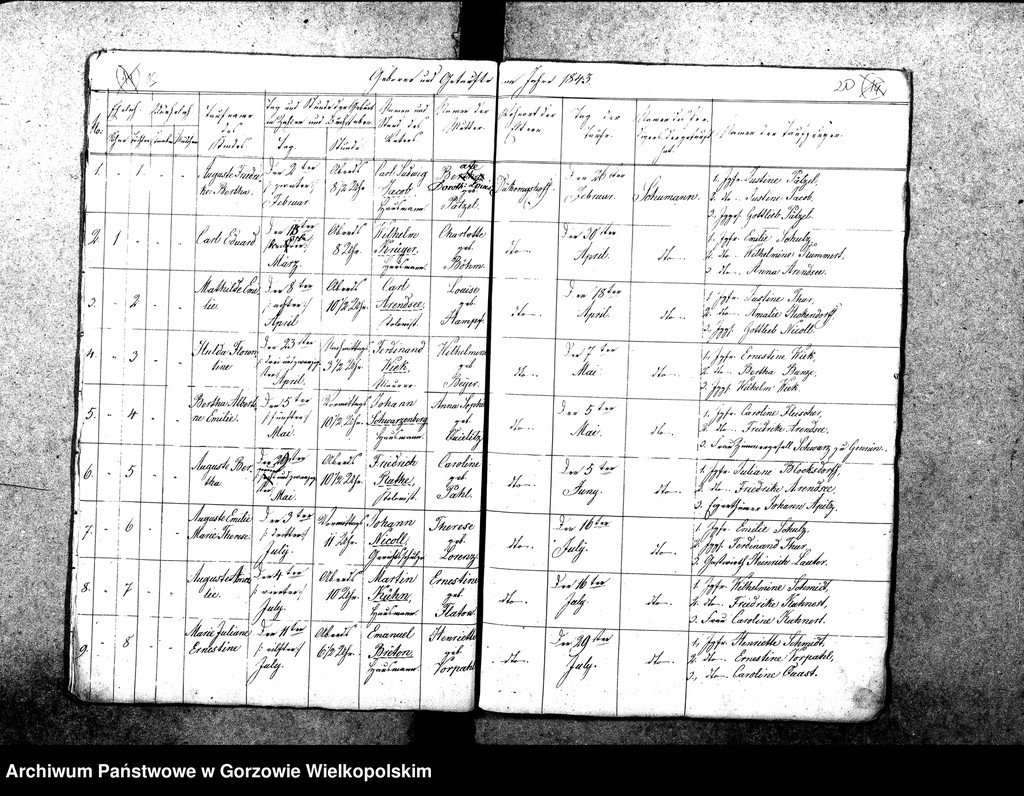 Geborene und Getaufte im Jahre 1843
20
No.
Taufname des Kindes.
Tag und Stunde der Geburt in Zahlen und Buchstaben.
Tag. Stunde.
Namen und Stand des Vaters.
Namen der Mutter.
Wohnort der Eltern.
Tag der Taufe.
Namen der Taufzeugen.
1. 1
Auguste Friederike Bertha.
Den 2ter
/:zweiter:/
Februar
Abends
8 1/2 Uhr.
Carl Ludwig
Jacob
Hausmann.
geb.
Pätzel.
Den 26ter
Februar.
Schumann.
1. Jgfr. Justine Pätzel,
2. dto Justine Jacob,
3. Jggs. Gottlieb Pätzel.
2. 1
Carl Eduard
März.
Abends
8 Uhr.
Wilhelm
Krüger.
Hausmann.
Charlotte
geb.
Böhm.
dto.
Den 30ter
April.
dto.
1. Jgfr. Emilie Schulz,
2. dto. Wilhelmine Kummert,
3. dto Anna Arendsee.
3. 2
Mathilde Emilie.
Den 8ter
/:achter:/
April
Abends
10 1/2 Uhr.
Carl
Arendsee.
Kolonist.
Louise
geb.
Kampf.
dto.
Den 18ter
April.
dto.
1. Jgfr. Justine Thur,
2. dto Amalie Stockendorff
3. Jggs. Gottlieb Nicoll.
4. 3
Hulda Florentine
Den 23ter
April.
Nachmittags
3 1/2 Uhr.
Ferdinand
Kiek.
Maurer.
Wilhelmine
geb.
Beyer.
dto.
Den 7ter
Mai.
dto.
1. Jgfr. Ernestine Kiek,
2. dto Bertha Ranze,
3. Jggs. Wilhelm Kiek.
5. 4
Bertha Albertine Emilie.
Den 5ter
/:fünfter:/
Mai.
Vormittags
10 1/2 Uhr.
Johann
Schwarzenberg
Hausmann.
Anna Sophie
geb.
Quielitz.
dto.
Den 5ter
Mai.
dto.
1. Jgfr. Caroline Fleischer,
2. dto. Friedrike Arendsee,
3. Frau Zimmergesell Schwarz, zu Gennin.
6. 5
Auguste Bertha.
Mai.
Abends
10 1/2 Uhr.
Friedrich
Rathe.
Kolonist.
Caroline
geb.
Pahl.
dto.
Den 5ter
Juny.
dto.
1. Jgfr. Juliane Blocksdorff,
2. dto Friedrike Arendsee,
3. Eigenthümer Johann Apitz.
7. 6
Auguste Emilie
Marie Therese.
Den 3ter
/:dritter:/
July.
Vormittags
11 Uhr.
Johann
Nicoll.
Gerichtsschulze
Therese
geb.
Lorenz.
dto.
Den 16ter
July.
dto.
1. Jgfr. Emilie Schulz,
2. Jggs. Ferdinand Thur,
3. Gastwirth Heinrich Lauter.
8. 7
Auguste Amalie.
Den 4ter
/:vierter:/
July.
Abends
10 Uhr.
Martin
Kuhn.
Hausmann.
Ernestine
geb.
Platow.
dto.
Den 16ter
July.
dto.
1. Jgfr. Wilhelmine Schmidt,
2. dto Friedrike Kuhnert,
3. Frau Caroline Kuhnert.
9. 8
Marie Juliane
Ernestine
Den 11ter
/:eilfter:/
July.
Abends
6 1/2 Uhr.
Emanuel
Hausmann.
Henriette
geb.
Vorpahl.
dto.
Den 29ter
July.
dto.
1. Jgfr. Henriette Schmidt,
2. dto. Ernestine Vorpahl,
3. dto. Caroline Quast.
Archiwum Państwowe w Gorzowie Wielkopolskim